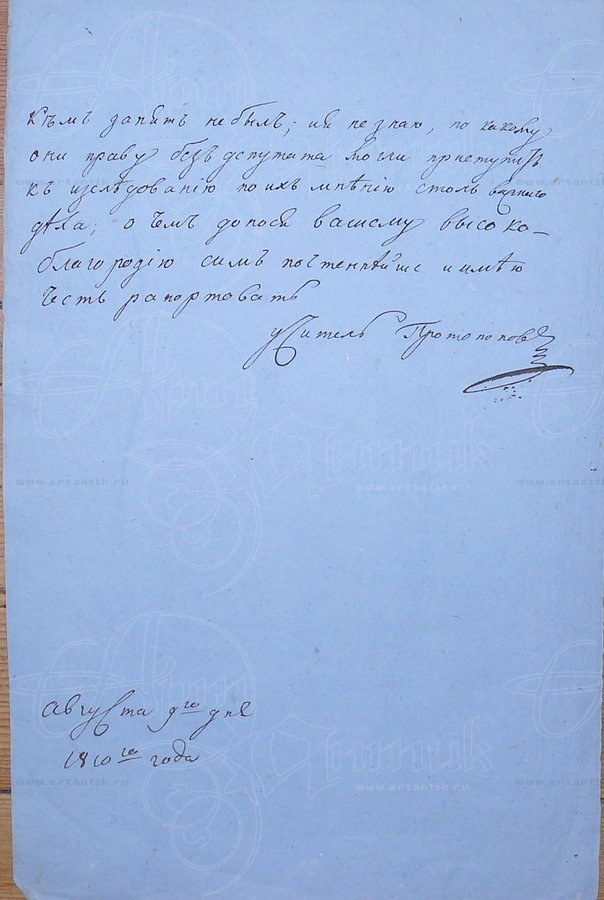 кѣмъ занятъ небылъ; и я незнаю, по какому
они праву безъ депутата могли приступить
къ изслѣдованію по ихъ мнѣнію столь важнаго
дѣла; о чемъ донося вашему высоко-
благородію симъ почтеннѣйше и имѣю
честь рапортовать
учитель Протопоповъ
Августа 9го дня
1810го года
www.artantik.ru
www.artantik.ru
www.artantik.ru
www.artantik.ru